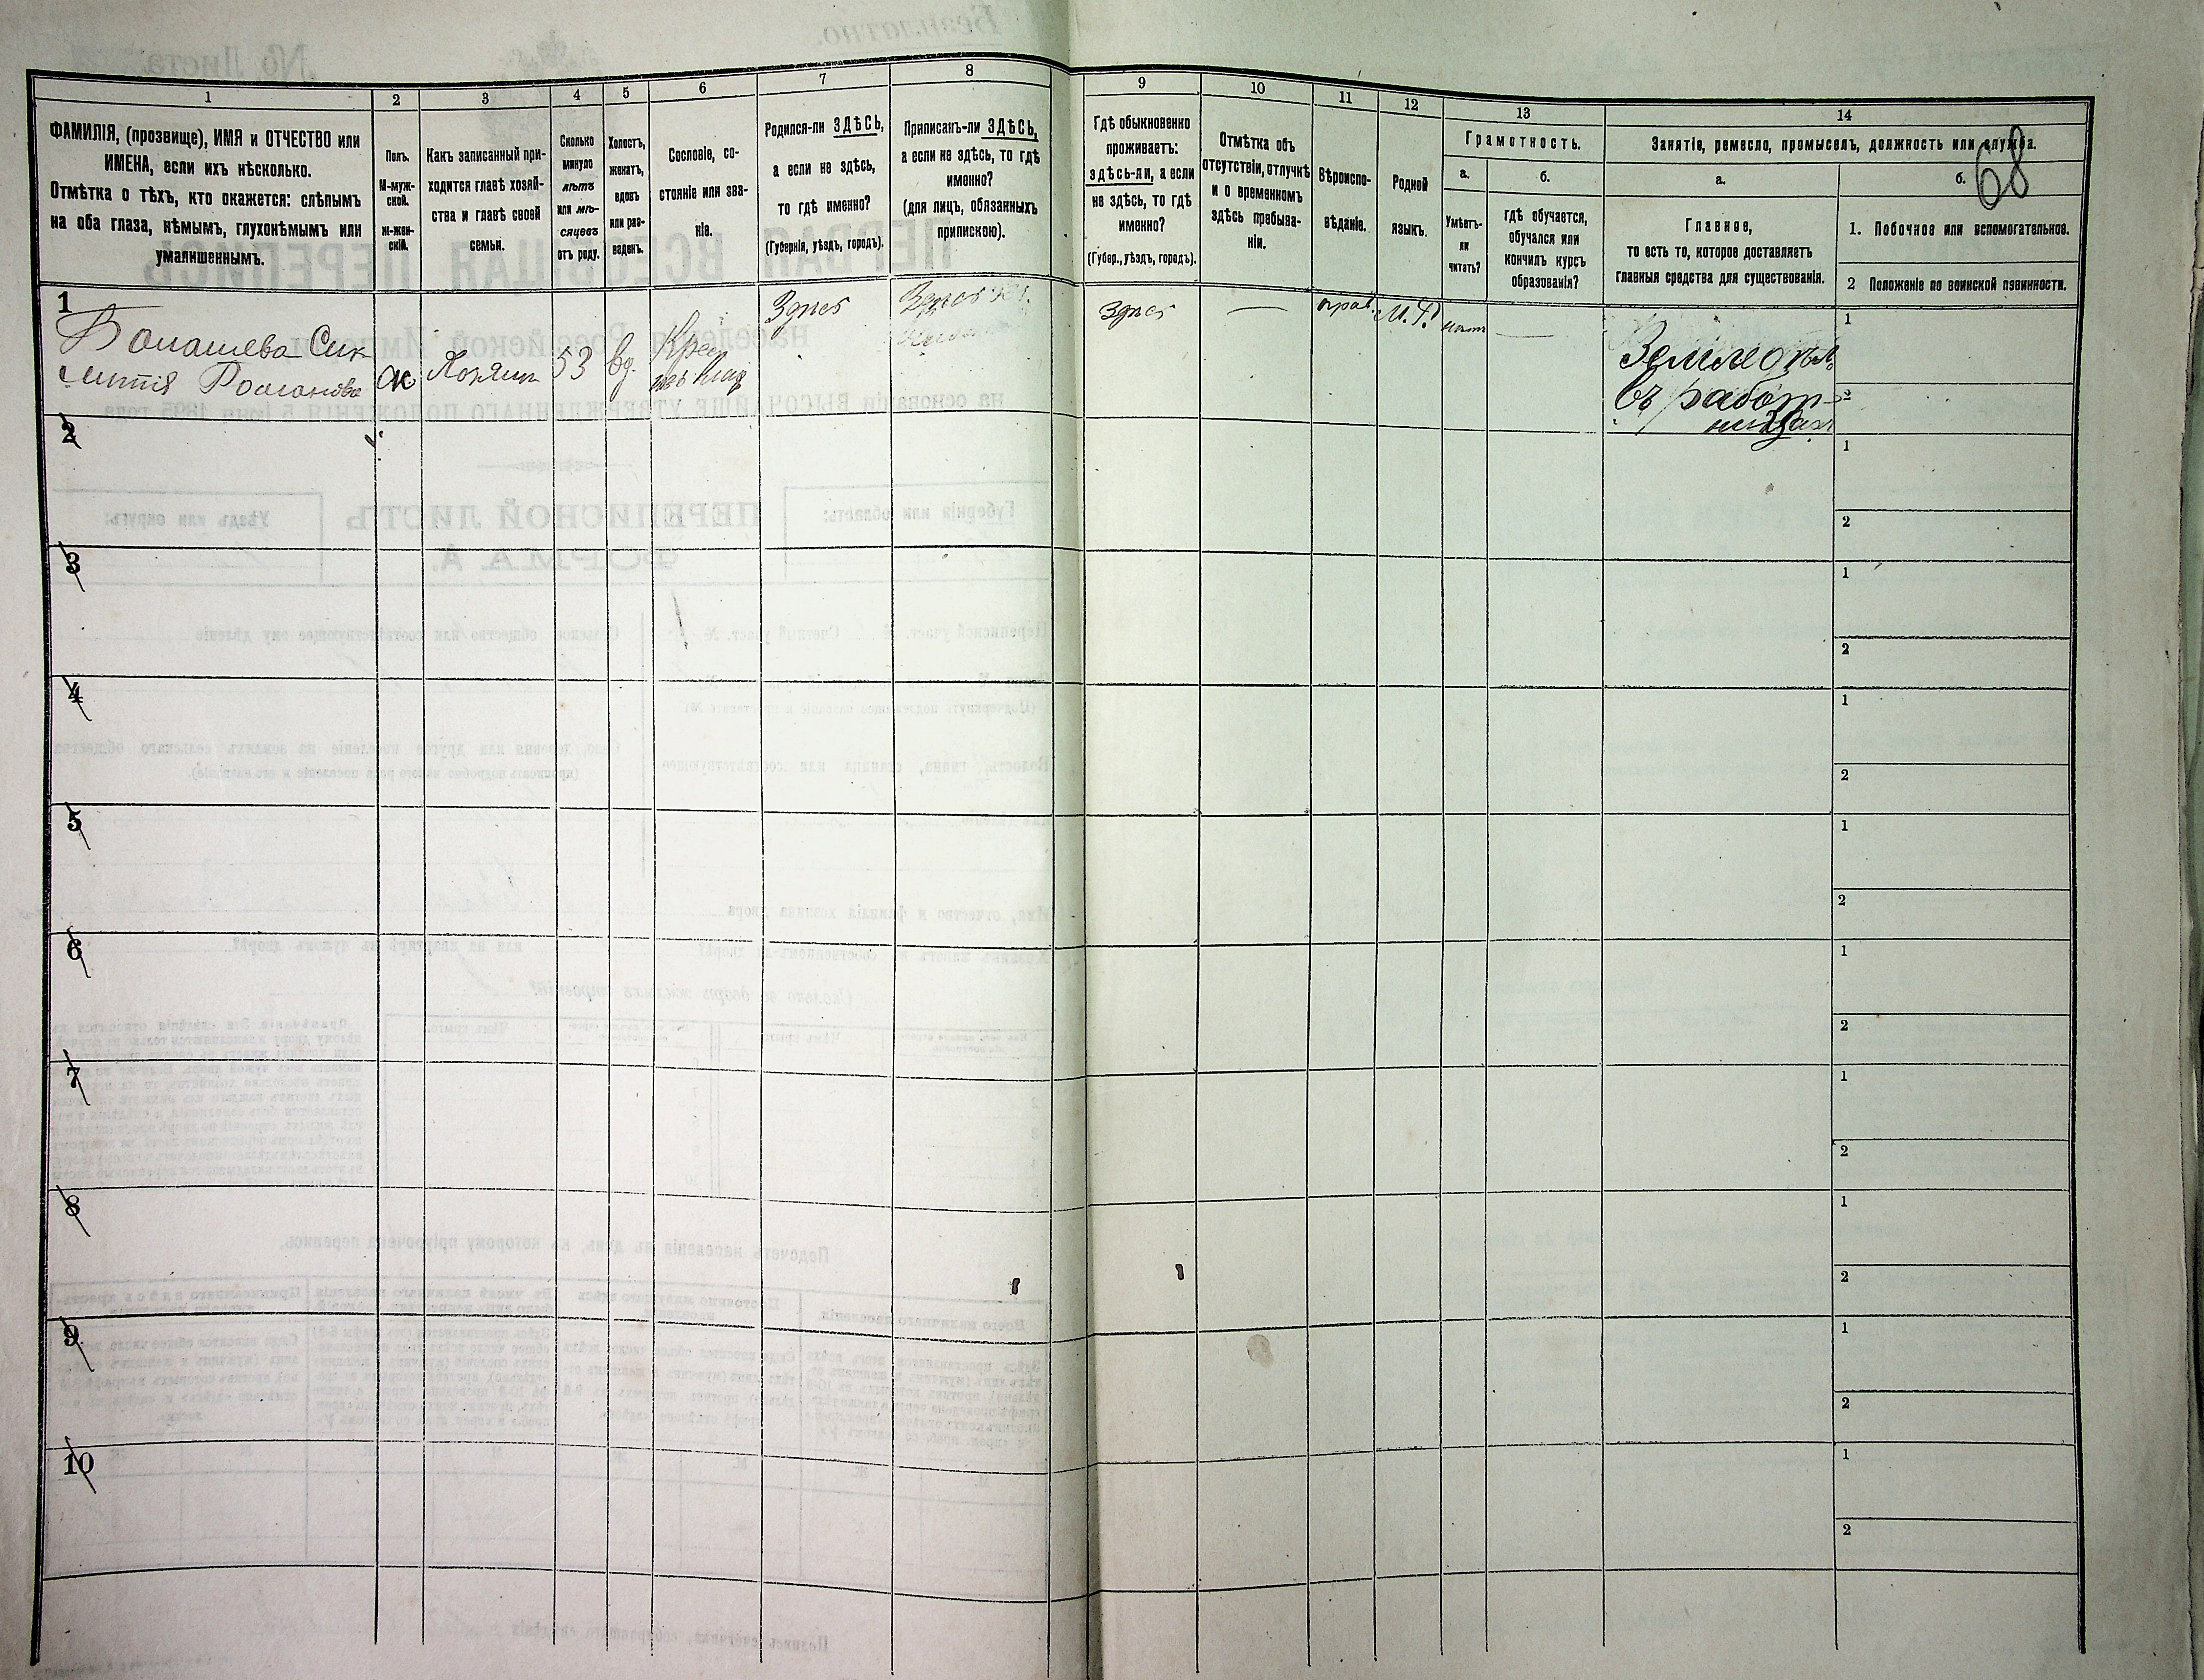 68
1
2
3
4
5
6
7
8
9
10
11
12
13
14
ФАМИЛІЯ, (прозвище), ИМЯ и ОТЧЕСТВО или
ИМЕНА, если ихъ нѣсколько.
Отмѣтка о тѣхъ, кто окажется: слѣпымъ
на оба глаза, нѣмымъ, глухонѣмымъ или
умалишеннымъ.
Полъ.
М-муж-
ской.
ж-жен-
скій.
Какъ записанный при-
ходится главѣ хозяй-
ства и главѣ своей
семьи.
Сколько
минуло
лѣтъ
или мѣ-
сяцевъ
отъ роду.
Холостъ,
женатъ,
вдовъ
или раз-
веденъ.
Сословіе, со-
стояніе или зва-
ніе.
Родился-ли ЗДѢСЬ,
а если не здѣсь,
то гдѣ именно?
(Губернія, уѣздъ, городъ).
Приписанъ-ли ЗДѢСЬ,
а если не здѣсь, то гдѣ
именно?
(для лицъ, обязанныхъ
припискою).
Гдѣ обыкновенно
проживаетъ:
здѣсь-ли, а если
не здѣсь, то гдѣ
именно?
(Губер., уѣздъ, городъ).
Отмѣтка объ
отсутствіи, отлучкѣ
и о временномъ
здѣсь пребыва-
ніи.
Вѣроиспо-
вѣданіе.
Родной
языкъ.
Грамотность.
а.
Умѣетъ-
ли
читать?
б.
гдѣ обучается,
обучался или
кончилъ курсъ
образованія?
Занятіе, ремесло, промыселъ, должность или служба.
а.
Главное,
то есть то, которое доставляетъ
главныя средства для существованія.
б.
1. Побочное или вспомогательное.
2 Положеніе по воинской повинности.
1
Романова
ж
53
вд.
Здѣсь
Здѣсь
Здѣсь
—
прав.
М. Р.
нѣтъ
—
въ работ-
ницахъ
1
2
2
1
2
3
1
2
4
1
2
5
1
2
6
1
2
7
1
2
8
1
2
9
1
2
10
1
2